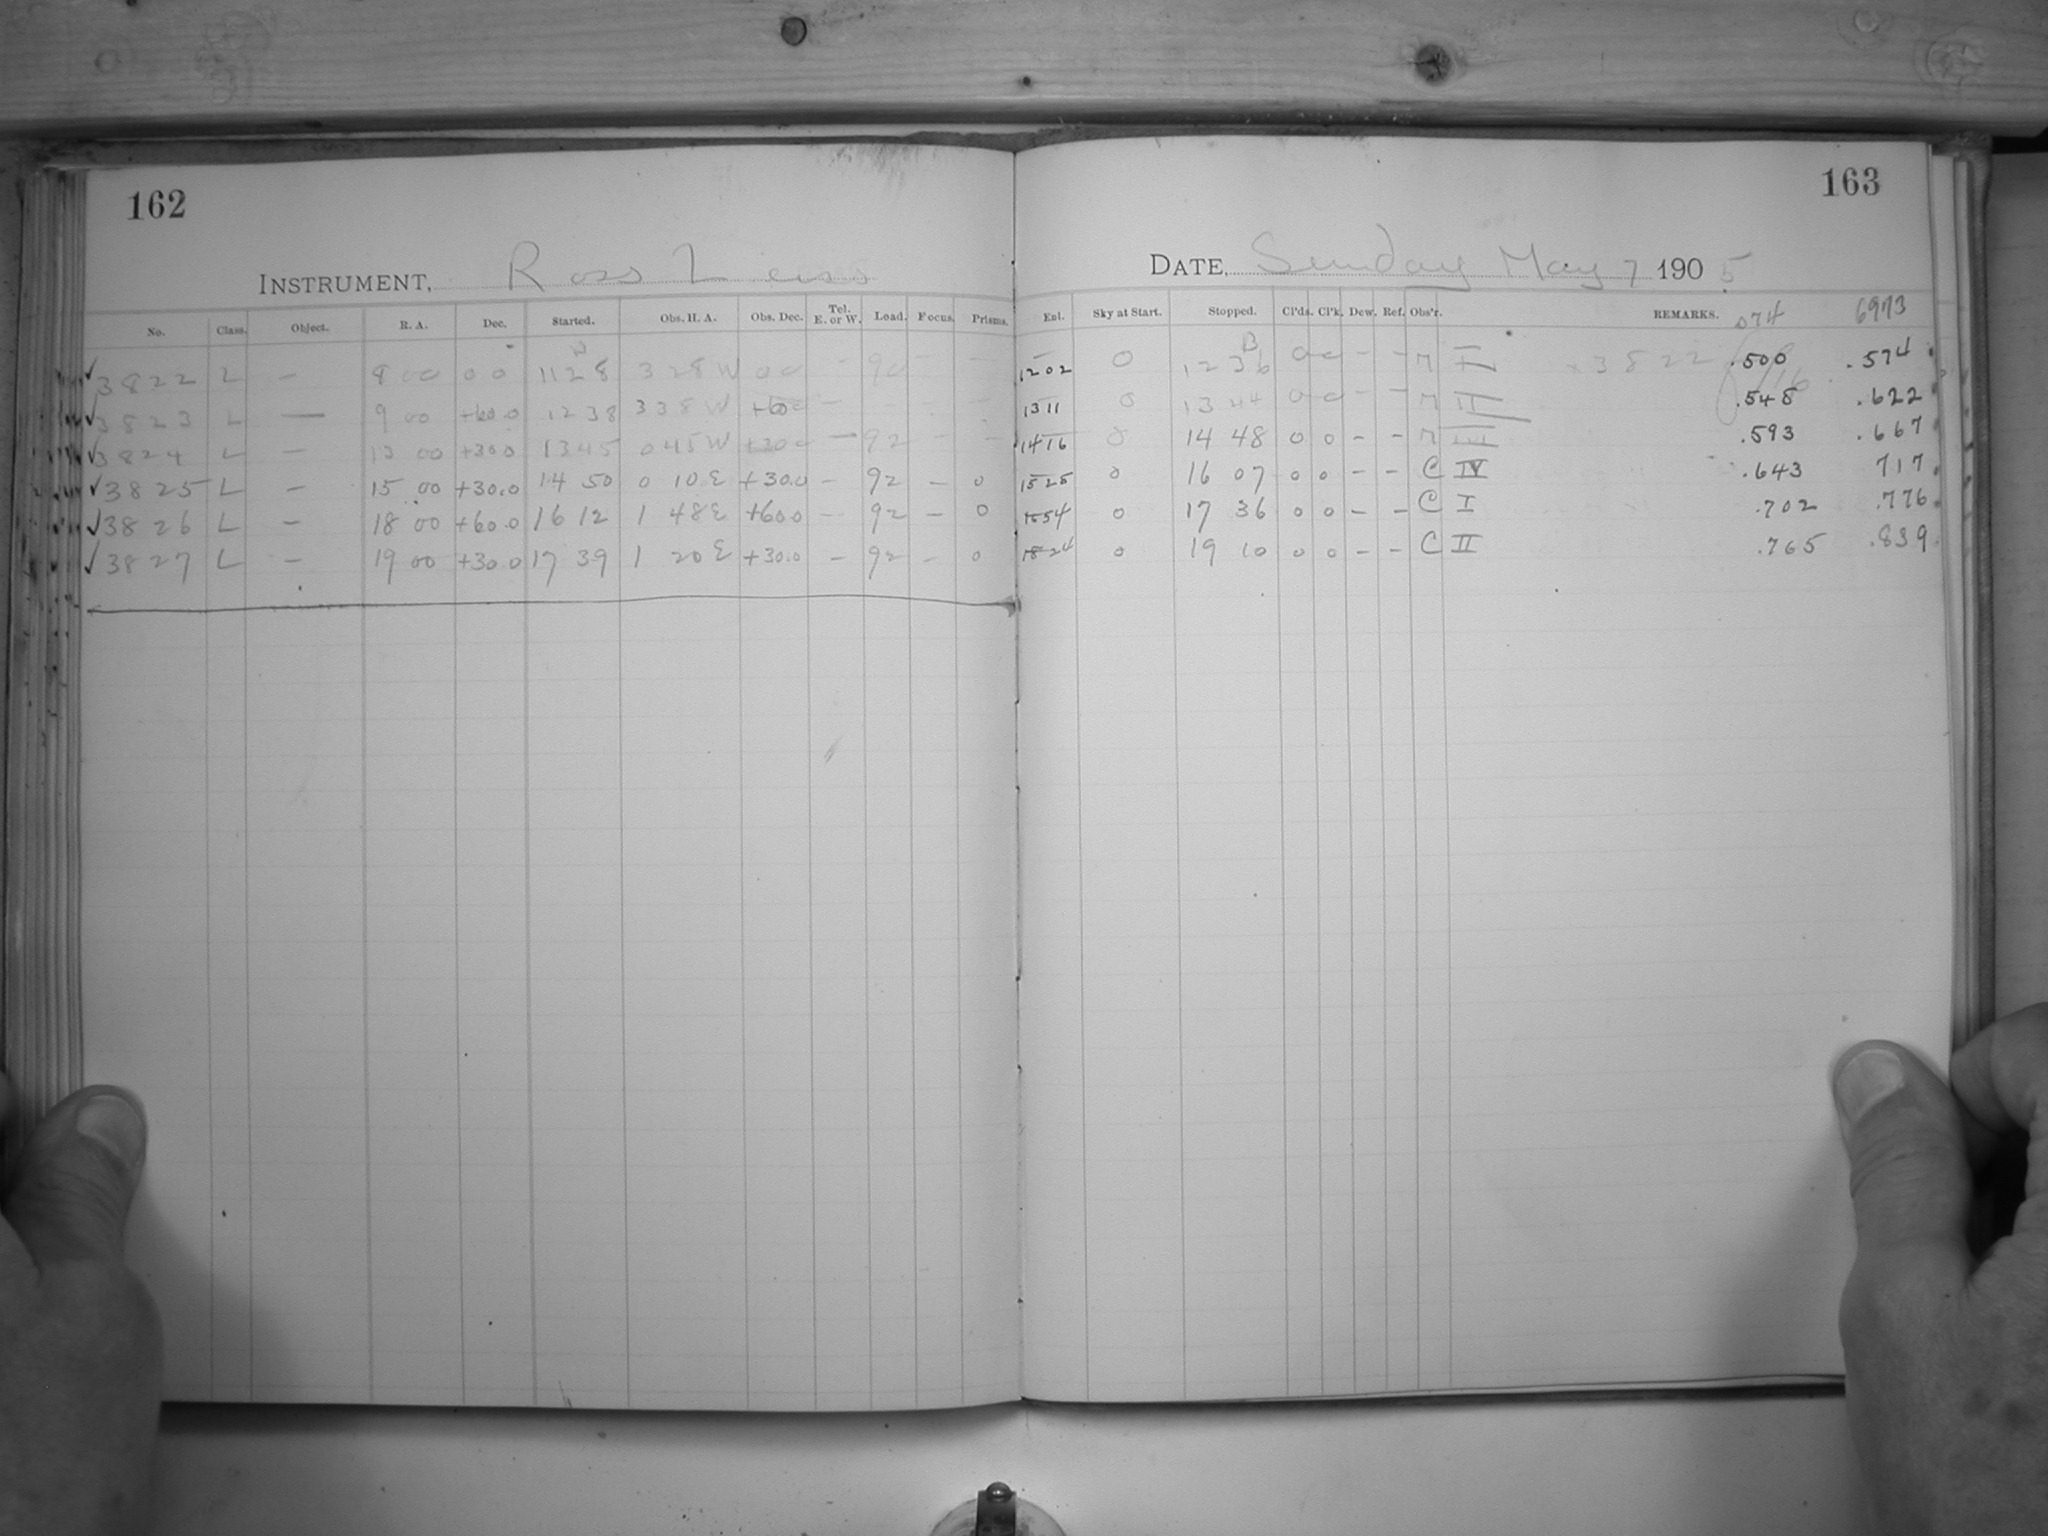 162
INSTRUMENT, Ross Lens
No. Class. Object. R. A. Dec. Started. Obs. H. A. Obs. Dec. Tel. E. or W. Load. Focus. Prisms.
✓3822 L — 8 00 0 0 11 28 3 28 W 0 0 — 90 — —
✓3823 L — 9 00 +60.0 12 38 3 38 W +60.0 — — — —
✓3824 L — 13 00 +30.0 13 45 0 45 W +30.0 — 92 — —
✓3825 L — 15 00 +30.0 14 50 0 10 E +30.0 — 92 — 0
✓3826 L — 18 00 +60.0 16 12 1 48 E +60.0 — 92 — 0
✓3827 L — 19 00 +30.0 17 39 1 20 E +30.0 — 92 — 0
163
DATE, Sunday May 7 1905
Exl. Sky at Start. Stopped. Cl'ds. Cl'k. Dew. Ref. Obs'r. REMARKS. 074 6973
12 02 0 12 36 0 0 – – M I x 3822 .500 .574
13 11 0 13 44 0 0 – – M II .548 .622
14 16 0 14 48 0 0 – – M III .593 .667
15 25 0 16 07 0 0 – – C IV .643 717
1654 0 17 36 0 0 – – C I .702 .776
18 24 0 19 10 0 0 – – C II .765 .839